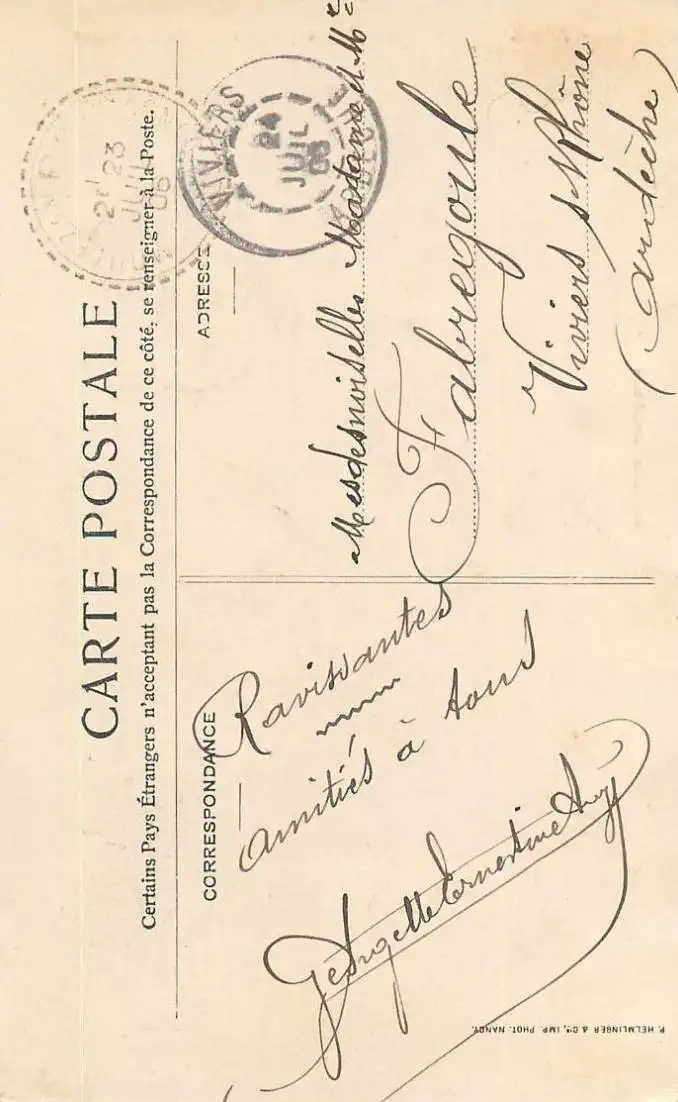 CARTE POSTALE
Certains Pays Étrangers n'acceptant pas la Correspondance de ce côté, se renseigner à la Poste.
CORRESPONDANCE
Ravissantes
amitiés à tous
Georgette Ernestine
ADRESSE
Mesdemoiselles Madame et Mr
Fabregoule
Viviers s Rhône
(Ardèche)
VIVIERS
24
JUIL
06
23
JUIL
06
P. HELMLINGER & Cie, IMP. PHOT. NANCY.